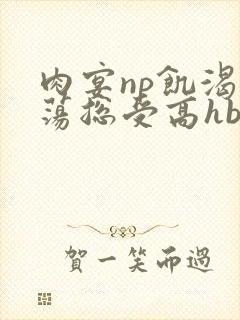 肉宴np飢渴
蕩總受高hb
賀一笑而過